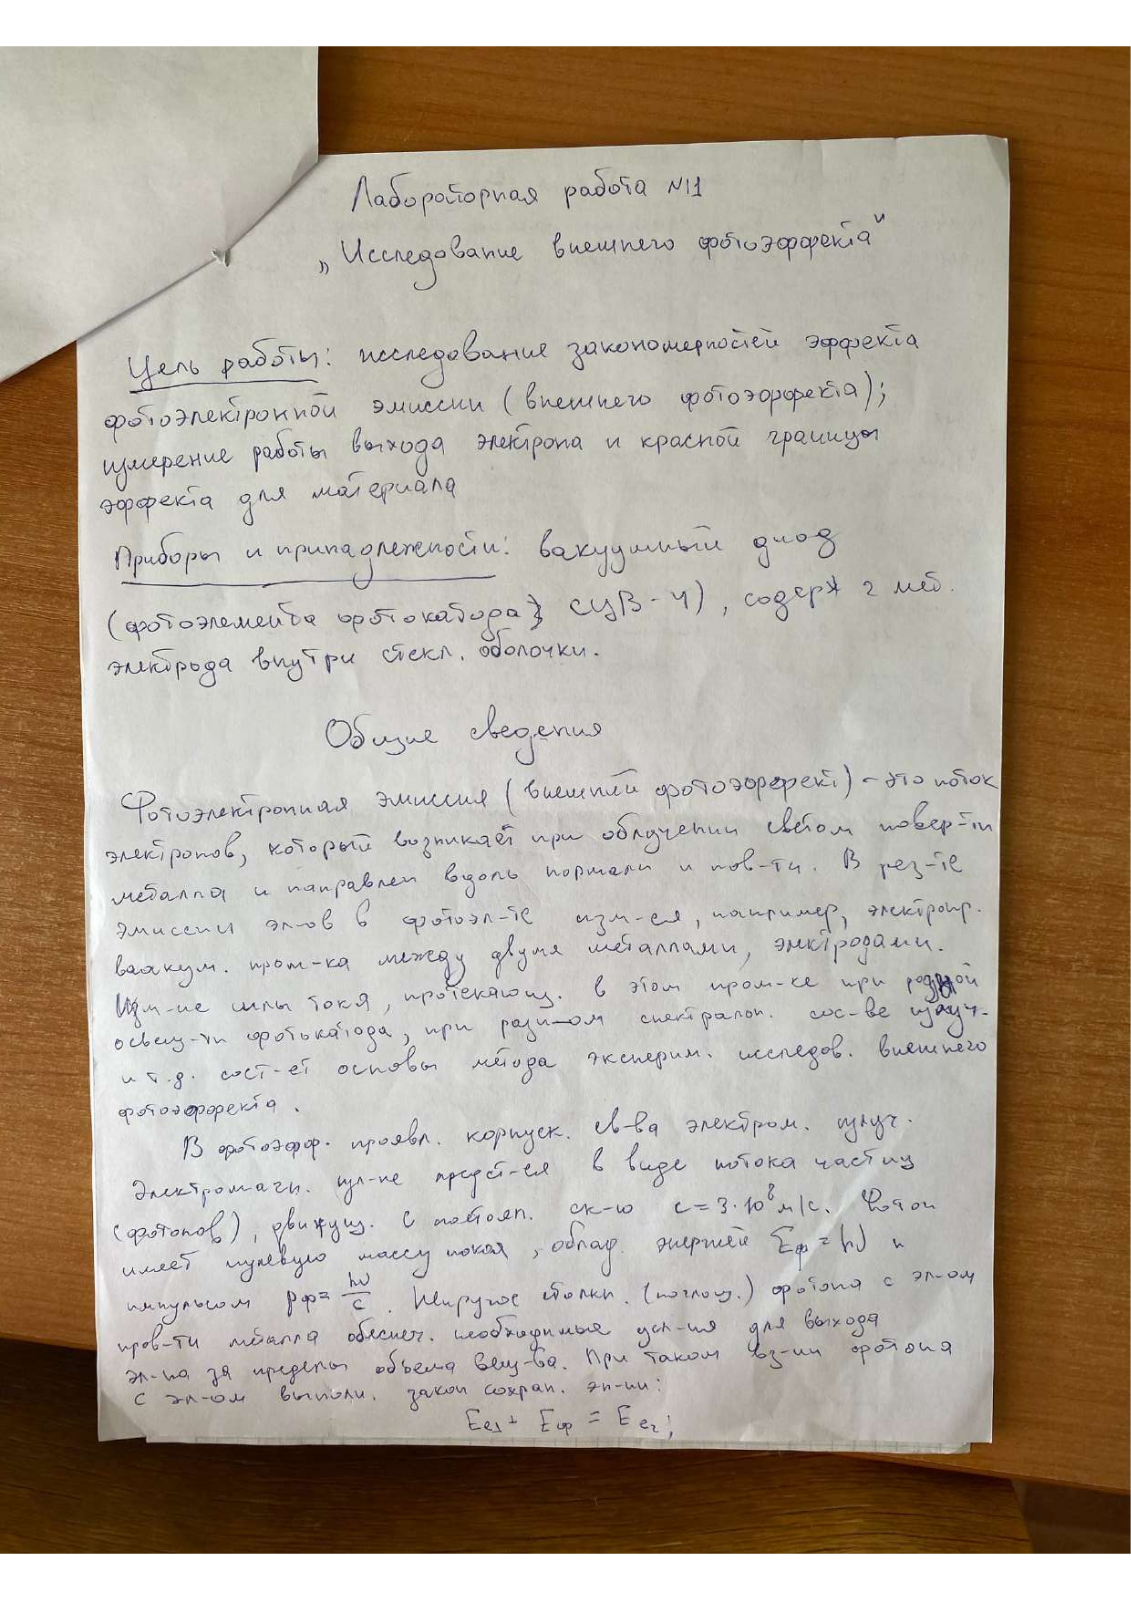 Лабораторная работа №11
„Исследование внешнего фотоэффекта"
Цель работы: исследование закономерностей эффекта
фотоэлектронной эмиссии (внешнего фотоэффекта);
измерение работы выхода электрона и красной границы
эффекта для материала
Приборы и принадлежности: вакуумный диод
(фотоэлемента фотокатода СЦВ-4), содерж 2 мет.
электрода внутри стекл. оболочки.
Общие сведения
Фотоэлектронная эмиссия (внешний фотоэффект) - это поток
электронов, который возникает при облучении светом повер-ти
металла и направлен вдоль нормали к пов-ти. В рез-те
эмиссии эл-ов в фотоэл-те изм-ся, например, электропр.
вакуум. пром-ка между двумя металлами, электродами.
Изм-ие силы тока, протекающ. в этом пром-ке при разной
освещ-ти фотокатода, при разн-ом спектральн. сос-ве излуч-
и т.д. сост-ет основы метода эксперим. исследов. внешнего
фотоэффекта.
В фотоэфф. проявл. корпуск. св-ва электром. излуч.
Электромагн. изл-ие предст-ся в виде потока частиц
(фотонов), движущ. с постоян. ск-ю c=3·10⁸ м/с. Фотон
имеет нулевую массу покоя, облад. энергией Eф = hν и
импульсом pф= hν/c. Неупругое столкн. (поглощ.) фотона с эл-ом
пров-ти металла обеспеч. необходимые усл-ия для выхода
эл-на за пределы объема вещ-ва. При таком вз-ии фотона
с эл-ом выполн. закон сохран. эн-ии:
Ee₁ + Eф = Ee₂;